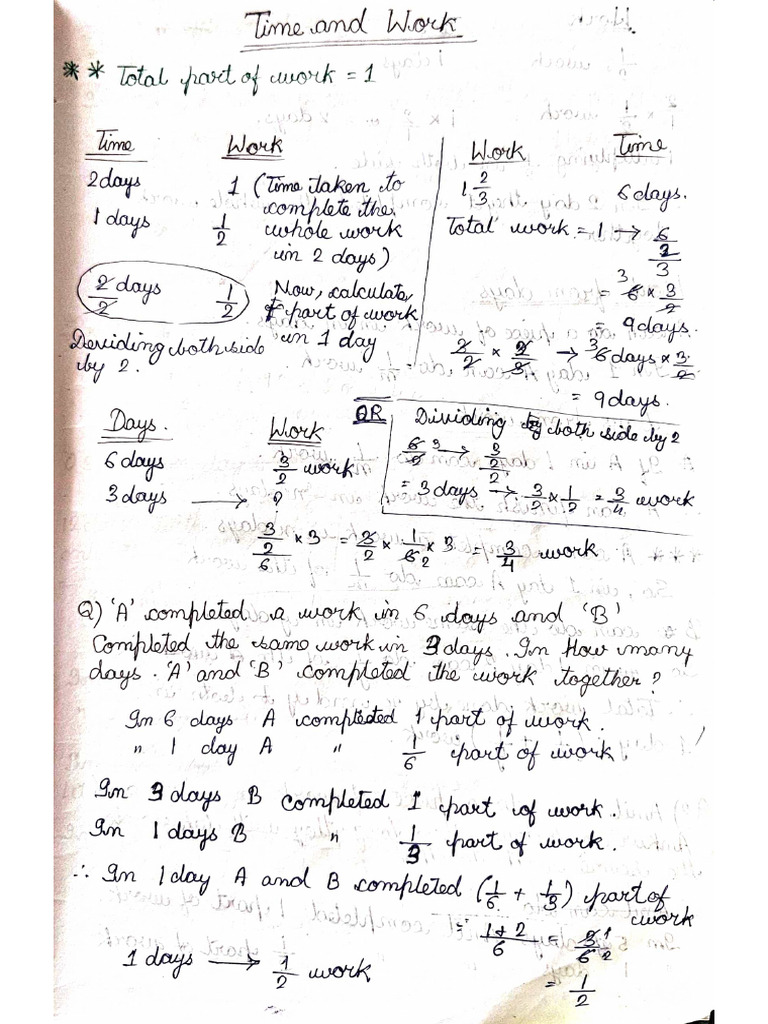 Time and Work
** Total part of work = 1
Time Work
2 days 1 (Time taken to
complete the
1 days 1/2 whole work
in 2 days)
2/2 days 1/2 Now, calculate
part of work
in 1 day
Deviding both side
by 2.
Work Time
1 2/3 6 days.
Total work = 1 → 6/(2/3)
= 6 × 3/2
= 9 days.
2/2 × 2/3 → 6 days × 3/2
= 9 days.
Days. Work
6 days 3/2 work
3 days → ?
3/2/6 × 3 = 3/2 × 1/6 × 3 = 3/4 work
OR
Dividing both side by 2
6/2 → 3/2/2
= 3 days → 3/2 × 1/2 = 3/4 work
Q) 'A' completed a work in 6 days and 'B'
Completed the same work in 3 days. In How many
days. 'A' and 'B' completed the work together?
In 6 days A completed 1 part of work.
" 1 day A " 1/6 part of work
In 3 days B completed 1 part of work.
In 1 days B " 1/3 part of work.
∴ In 1 day A and B completed (1/6 + 1/3) part of
work
= 1+2/6 = 3/6
= 1/2
1 days → 1/2 work